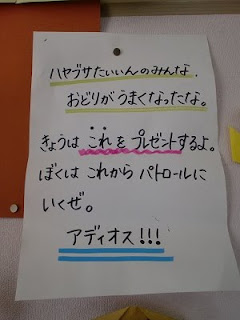 ハヤブサたいいんのみんな、
おどりがうまくなったな。
きょうは これを プレゼントするよ。
ぼくは これから パトロールに
いくぜ。
アディオス!!!